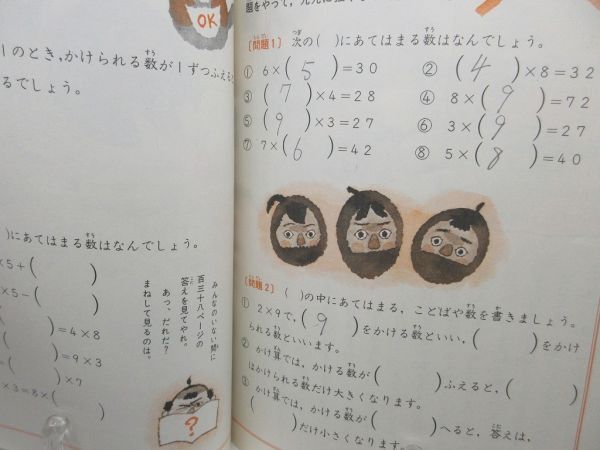 OK
1のとき，かけられる数が1ずつふえると
るでしょう。
)にあてはまる数はなんでしょう。
×5+(　　)
×5-(　　)
)=4×8
)=9×3
)×7
×3=8×(　　)
みんなのいない間に
百三十八ページの
答えを見てやれ。
あっ、だれだ？
まねして見るのは。
?
〔問題1〕 次の(　)にあてはまる数はなんでしょう。
① 6×(5)=30
② (4)×8=32
③ (7)×4=28
④ 8×(9)=72
⑤ (9)×3=27
⑥ 3×(9)=27
⑦ 7×(6)=42
⑧ 5×(8)=40
〔問題2〕 (　)の中にあてはまる，ことばや数を書きましょう。
① 2×9で，(9)をかける数といい，(　　)をかけ
られる数といいます。
② かけ算では，かける数が(　　)ふえると，(　　)
はかけられる数だけ大きくなります。
③ かけ算では，かける数が(　　)へると，答えは，
(　　)だけ小さくなります。